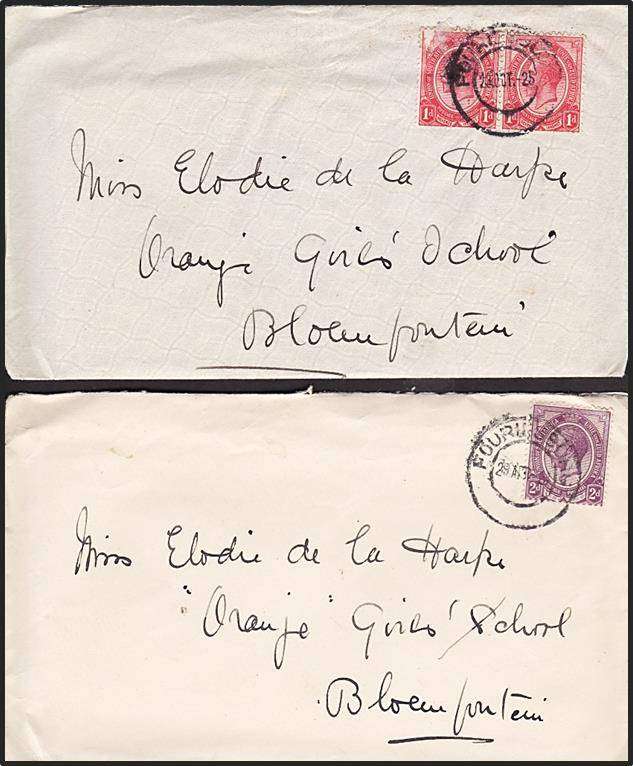 1d 1d
OCT.-25
Miss Elodie de la Harpe
Oranje Girls' School
Bloemfontein
FOURI
2d 2d
29
Miss Elodie de la Harpe
"Oranje" Girls' School
Bloemfontein